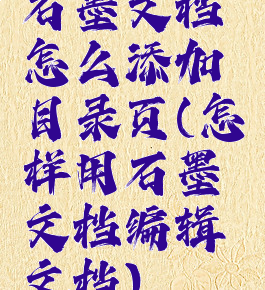 石墨文档
怎么添加
目录页(怎
样用石墨
文档编辑
文档)